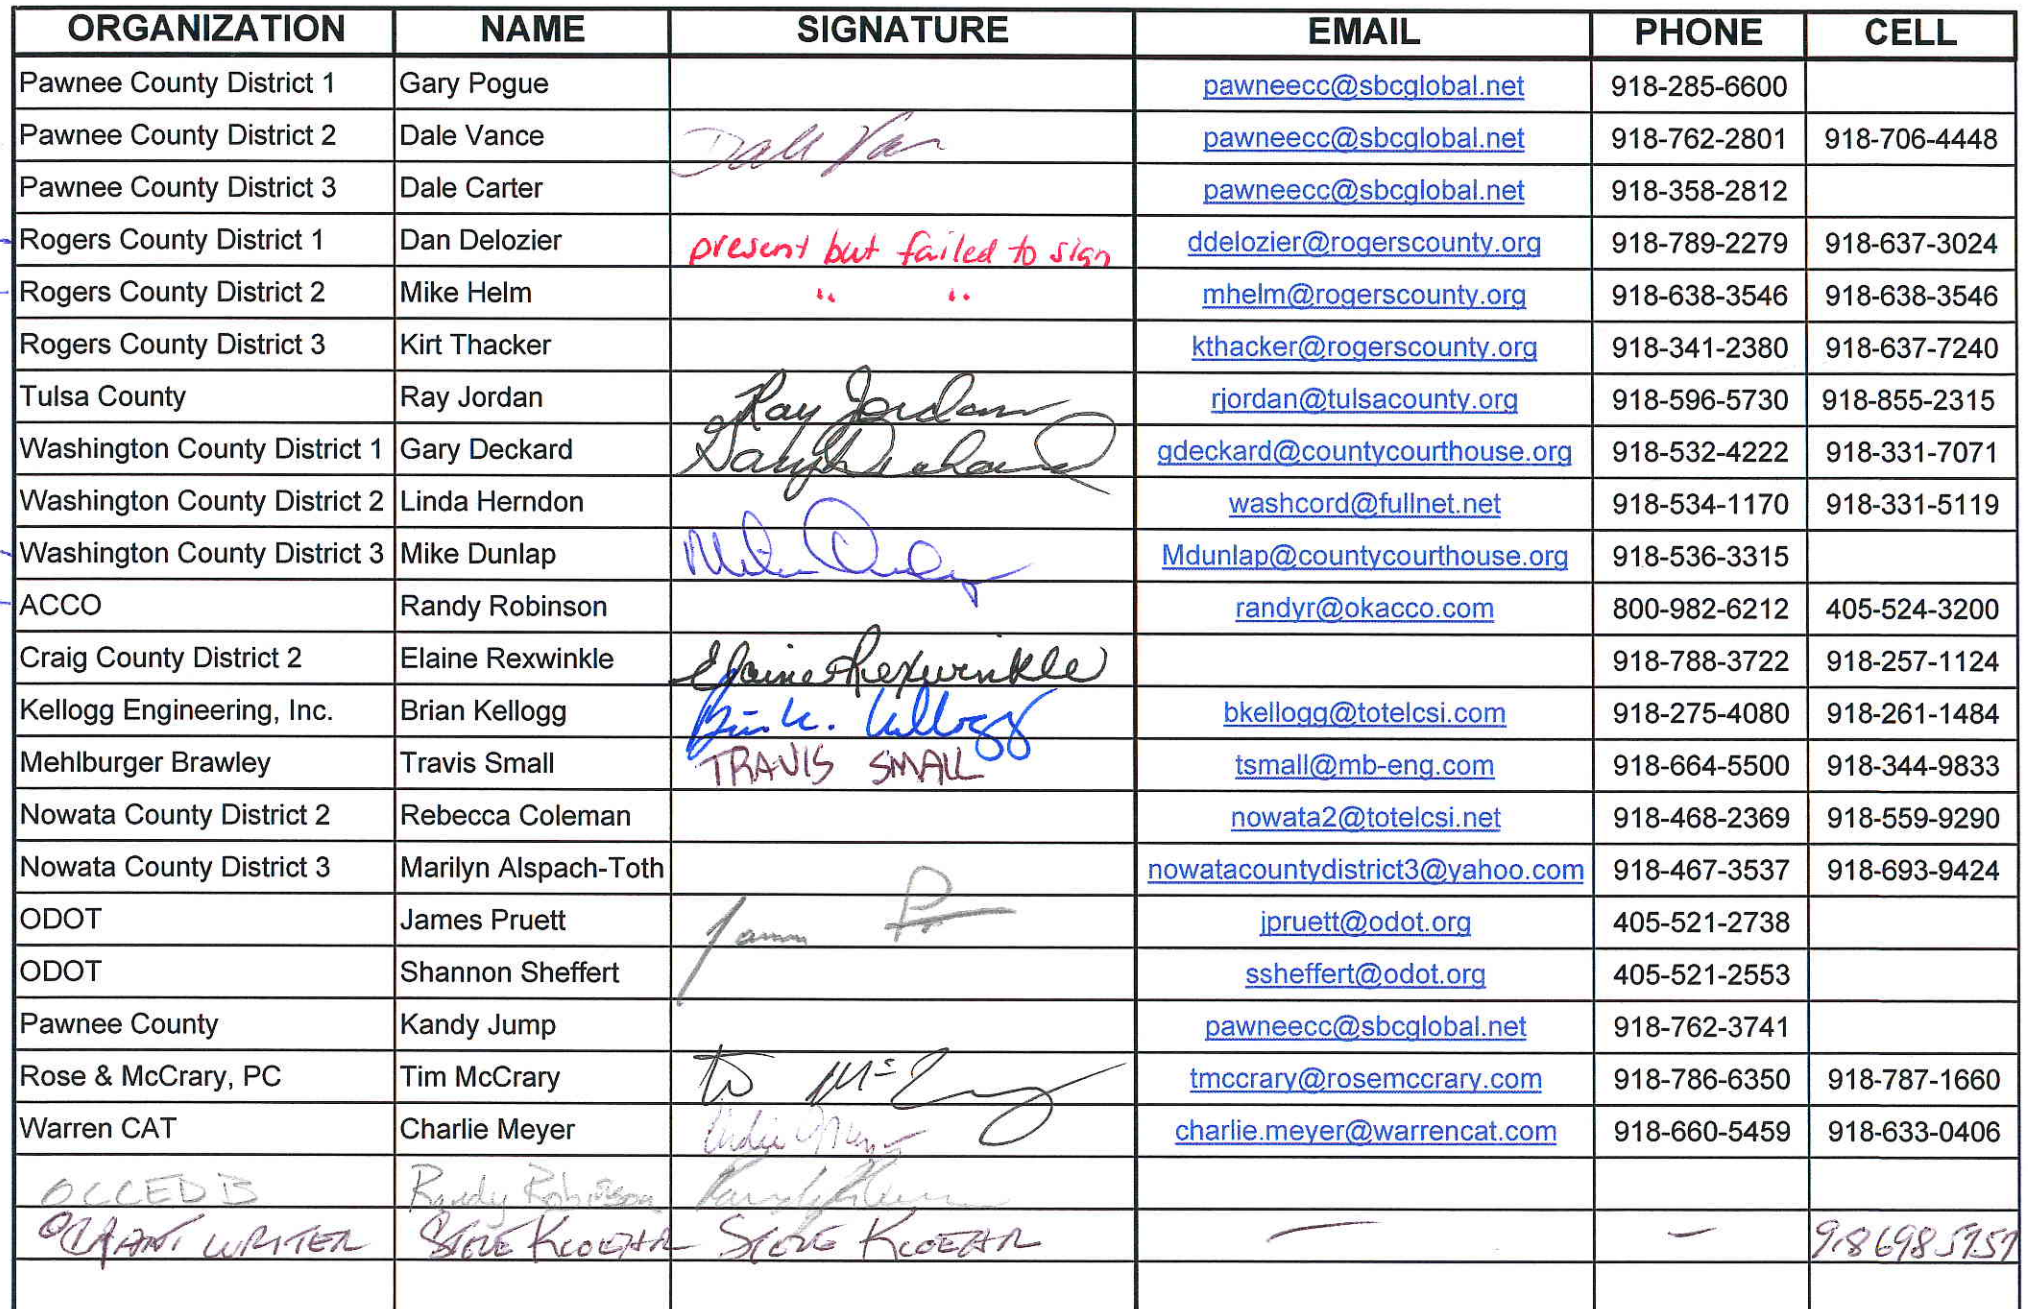 ORGANIZATION NAME SIGNATURE EMAIL PHONE CELL
Pawnee County District 1 Gary Pogue pawneecc@sbcglobal.net 918-285-6600
Pawnee County District 2 Dale Vance Dale Van pawneecc@sbcglobal.net 918-762-2801 918-706-4448
Pawnee County District 3 Dale Carter pawneecc@sbcglobal.net 918-358-2812
Rogers County District 1 Dan Delozier present but failed to sign ddelozier@rogerscounty.org 918-789-2279 918-637-3024
Rogers County District 2 Mike Helm " " mhelm@rogerscounty.org 918-638-3546 918-638-3546
Rogers County District 3 Kirt Thacker kthacker@rogerscounty.org 918-341-2380 918-637-7240
Tulsa County Ray Jordan Ray Jordan rjordan@tulsacounty.org 918-596-5730 918-855-2315
Washington County District 1 Gary Deckard Gary Deckard gdeckard@countycourthouse.org 918-532-4222 918-331-7071
Washington County District 2 Linda Herndon washcord@fullnet.net 918-534-1170 918-331-5119
Washington County District 3 Mike Dunlap Mike Dunlap Mdunlap@countycourthouse.org 918-536-3315
ACCO Randy Robinson randyr@okacco.com 800-982-6212 405-524-3200
Craig County District 2 Elaine Rexwinkle Elaine Rexwinkle 918-788-3722 918-257-1124
Kellogg Engineering, Inc. Brian Kellogg Brian K. Kellogg bkellogg@totelcsi.com 918-275-4080 918-261-1484
Mehlburger Brawley Travis Small TRAVIS SMALL tsmall@mb-eng.com 918-664-5500 918-344-9833
Nowata County District 2 Rebecca Coleman nowata2@totelcsi.net 918-468-2369 918-559-9290
Nowata County District 3 Marilyn Alspach-Toth nowatacountydistrict3@yahoo.com 918-467-3537 918-693-9424
ODOT James Pruett James jpruett@odot.org 405-521-2738
ODOT Shannon Sheffert ssheffert@odot.org 405-521-2553
Pawnee County Kandy Jump pawneecc@sbcglobal.net 918-762-3741
Rose & McCrary, PC Tim McCrary tmccrary@rosemccrary.com 918-786-6350 918-787-1660
Warren CAT Charlie Meyer Charlie Meyer charlie.meyer@warrencat.com 918-660-5459 918-633-0406
OCCEDB Randy Robinson
GRANT WRITER STEVE KLOEHR STEVE KLOEHR — — 9186985757